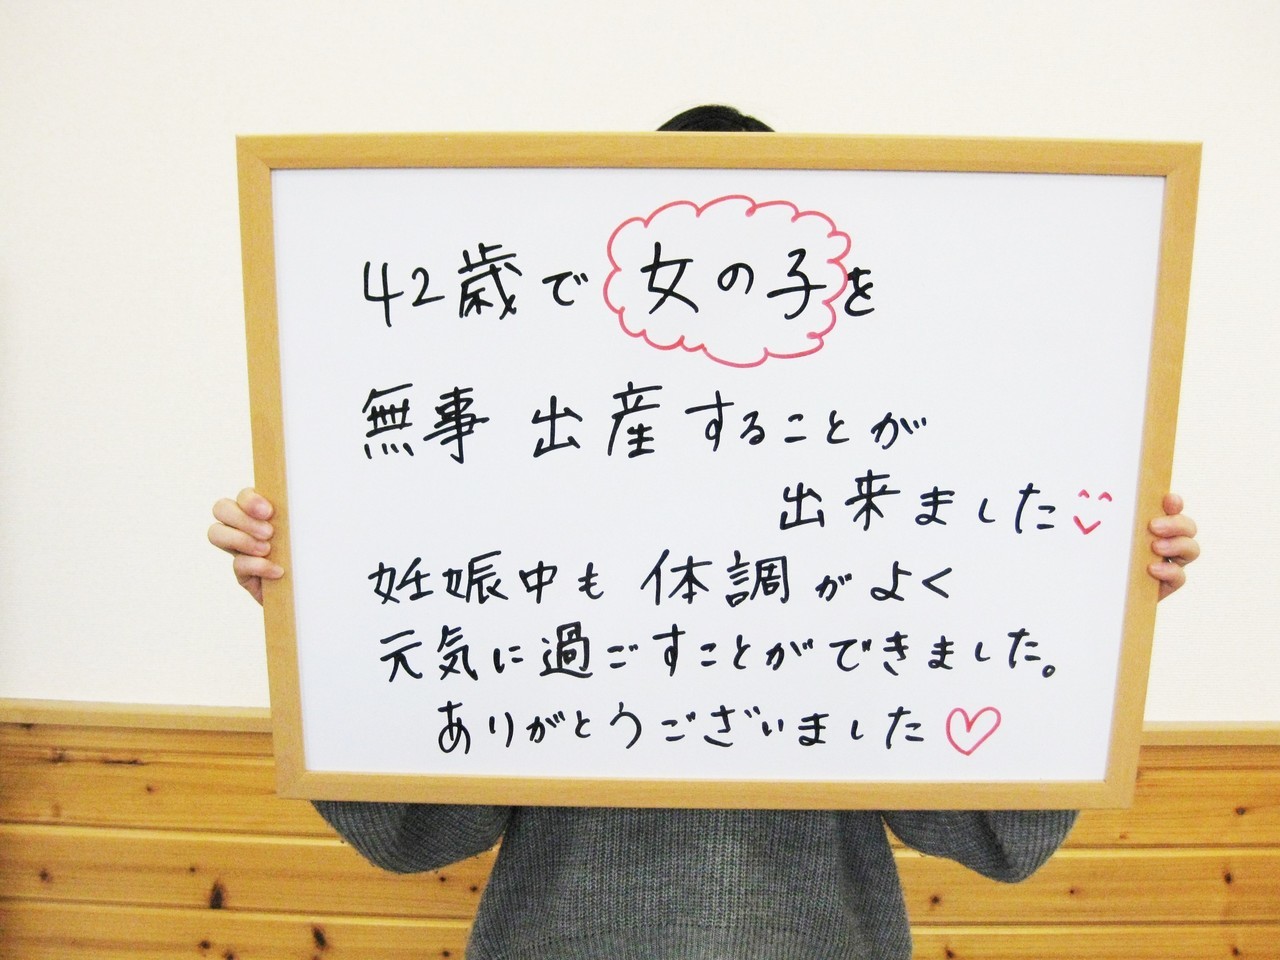 42歳で女の子を
無事 出産することが
出来ました
妊娠中も 体調がよく
元気に過ごすことができました。
ありがとうございました♡